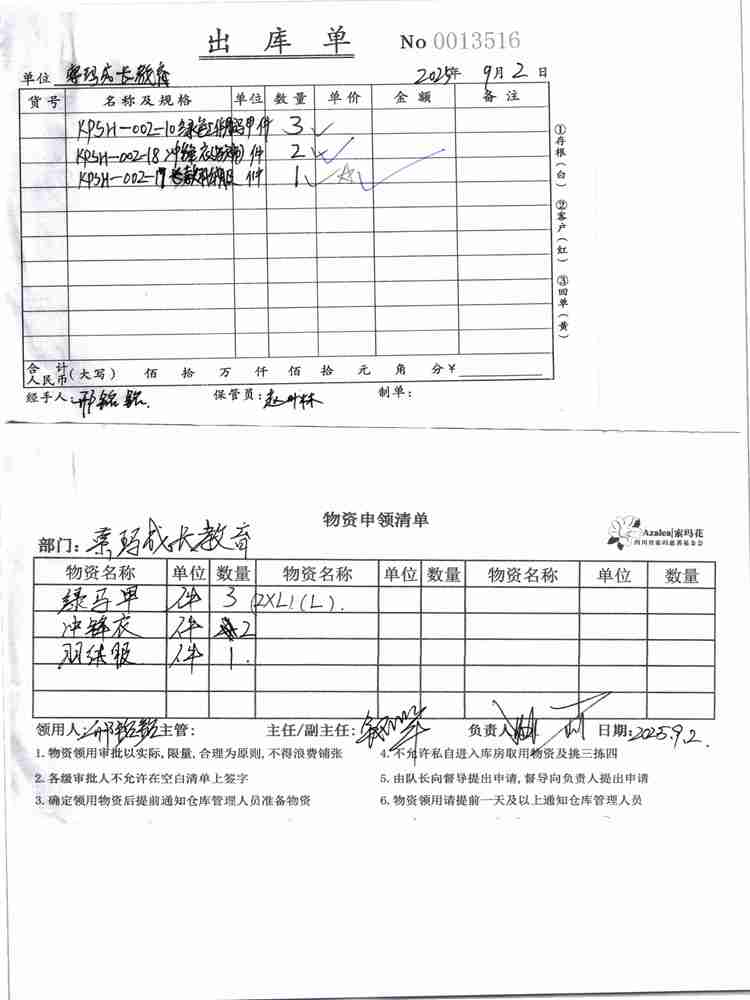 出库单 No 0013516
单位 索玛成长教育 2025年 9月 2 日
货号 名称及规格 单位 数量 单价 金额 备注
KPSH-002-10 绿色工作服马甲 件 3
KPSH-002-18 冲锋衣 件 2
KPSH-002-17 长款羽绒服 件 1
①存根(白) ②客户(红) ③回单(黄)
合计人民币(大写) 佰 拾 万 仟 佰 拾 元 角 分¥
经手人: 保管员: 制单:
物资申领清单
Azalea|索玛花
四川省索玛慈善基金会
部门: 索玛成长教育
物资名称 单位 数量 物资名称 单位 数量 物资名称 单位 数量
绿马甲 件 3 (2XL)(L).
冲锋衣 件 2
羽绒服 件 1.
领用人: 主管: 主任/副主任: 负责人: 日期: 2025.9.2.
1. 物资领用审批以实际, 限量, 合理为原则, 不得浪费铺张 4. 不允许私自进入库房取用物资及挑三拣四
2. 各级审批人不允许在空白清单上签字 5. 由队长向督导提出申请, 督导向负责人提出申请
3. 确定领用物资后提前通知仓库管理人员准备物资 6. 物资领用请提前一天及以上通知仓库管理人员